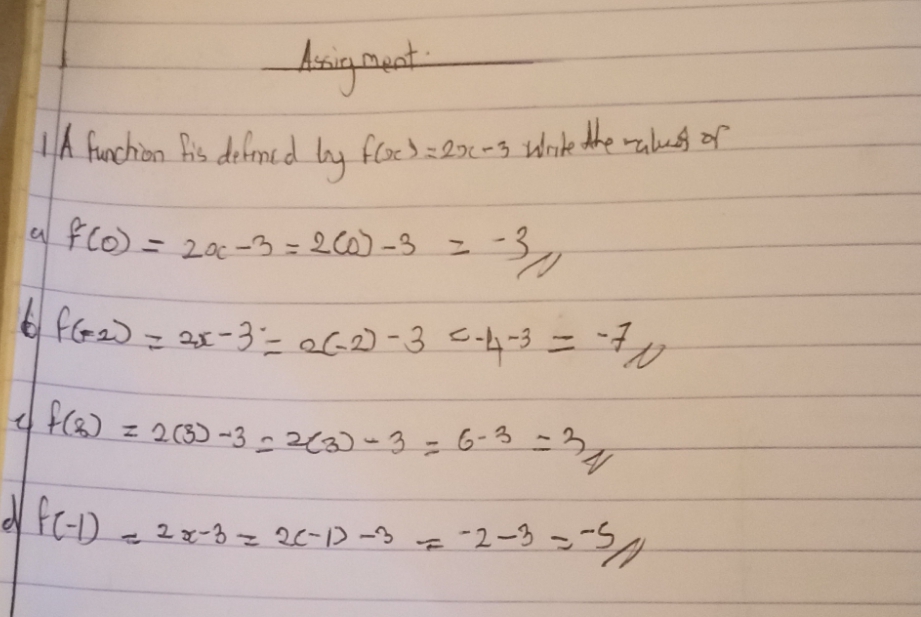 Assigment.
1 A function f is defined by f(x) = 2x - 3 Write the values of
a f(0) = 2x - 3 = 2(0) - 3 = -3
b f(-2) = 2x - 3 = 2(-2) - 3 = -4 - 3 = -7
c f(3) = 2(3) - 3 = 2(3) - 3 = 6 - 3 = 3
d f(-1) = 2x - 3 = 2(-1) - 3 = -2 - 3 = -5